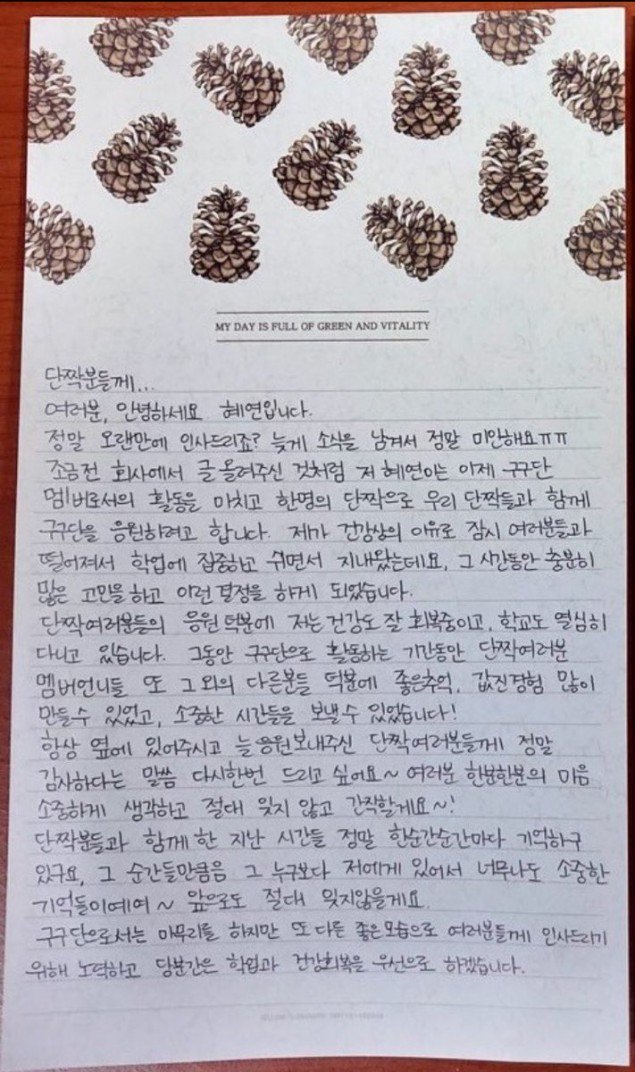 MY DAY IS FULL OF GREEN AND VITALITY
단짝분들께...
여러분, 안녕하세요 혜연입니다.
정말 오랜만에 인사드리죠? 늦게 소식을 남겨서 정말 미안해요ㅠㅠ
조금전 회사에서 글 올려주신 것처럼 저 혜연이는 이제 구구단
멤버로서의 활동을 마치고 한명의 단짝으로 우리 단짝들과 함께
구구단을 응원하려고 합니다. 제가 건강상의 이유로 잠시 여러분들과
떨어져서 학업에 집중하고 쉬면서 지내왔는데요, 그 시간동안 충분히
많은 고민을하고 이런 결정을 하게 되었습니다.
단짝여러분들의 응원 덕분에 저는 건강도 잘 회복중이고, 학교도 열심히
다니고 있습니다. 그동안 구구단으로 활동하는 기간동안 단짝여러분
멤버언니들 또 그 외의 다른분들 덕분에 좋은추억, 값진경험 많이
만들수 있었고, 소중한 시간들을 보낼수 있었습니다!
항상 옆에 있어주시고 늘 응원보내주신 단짝여러분들께 정말
감사하다는 말씀 다시한번 드리고 싶어요~ 여러분 한분한분의 마음
소중하게 생각하고 절대 잊지 않고 간직할게요~!
단짝분들과 함께 한 지난 시간들 정말 한순간순간마다 기억하구
있구요, 그 순간들만큼은 그 누구보다 저에게 있어서 너무나도 소중한
기억들이에여~ 앞으로도 절대 잊지않을게요.
구구단으로서는 마무리를 하지만 또 다른 좋은모습으로 여러분들께 인사드리기
위해 노력하고 당분간은 학업과 건강회복을 우선으로 하겠습니다.